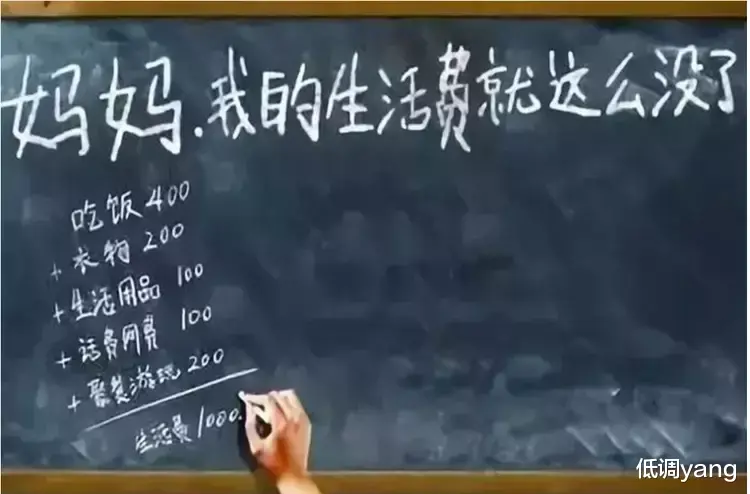 妈妈.我的生活费就这么没了
吃饭 400
+ 衣物 200
+ 生活用品 100
+ 话费网费 100
+ 聚餐游玩 200
生活费 1000.
低调yang